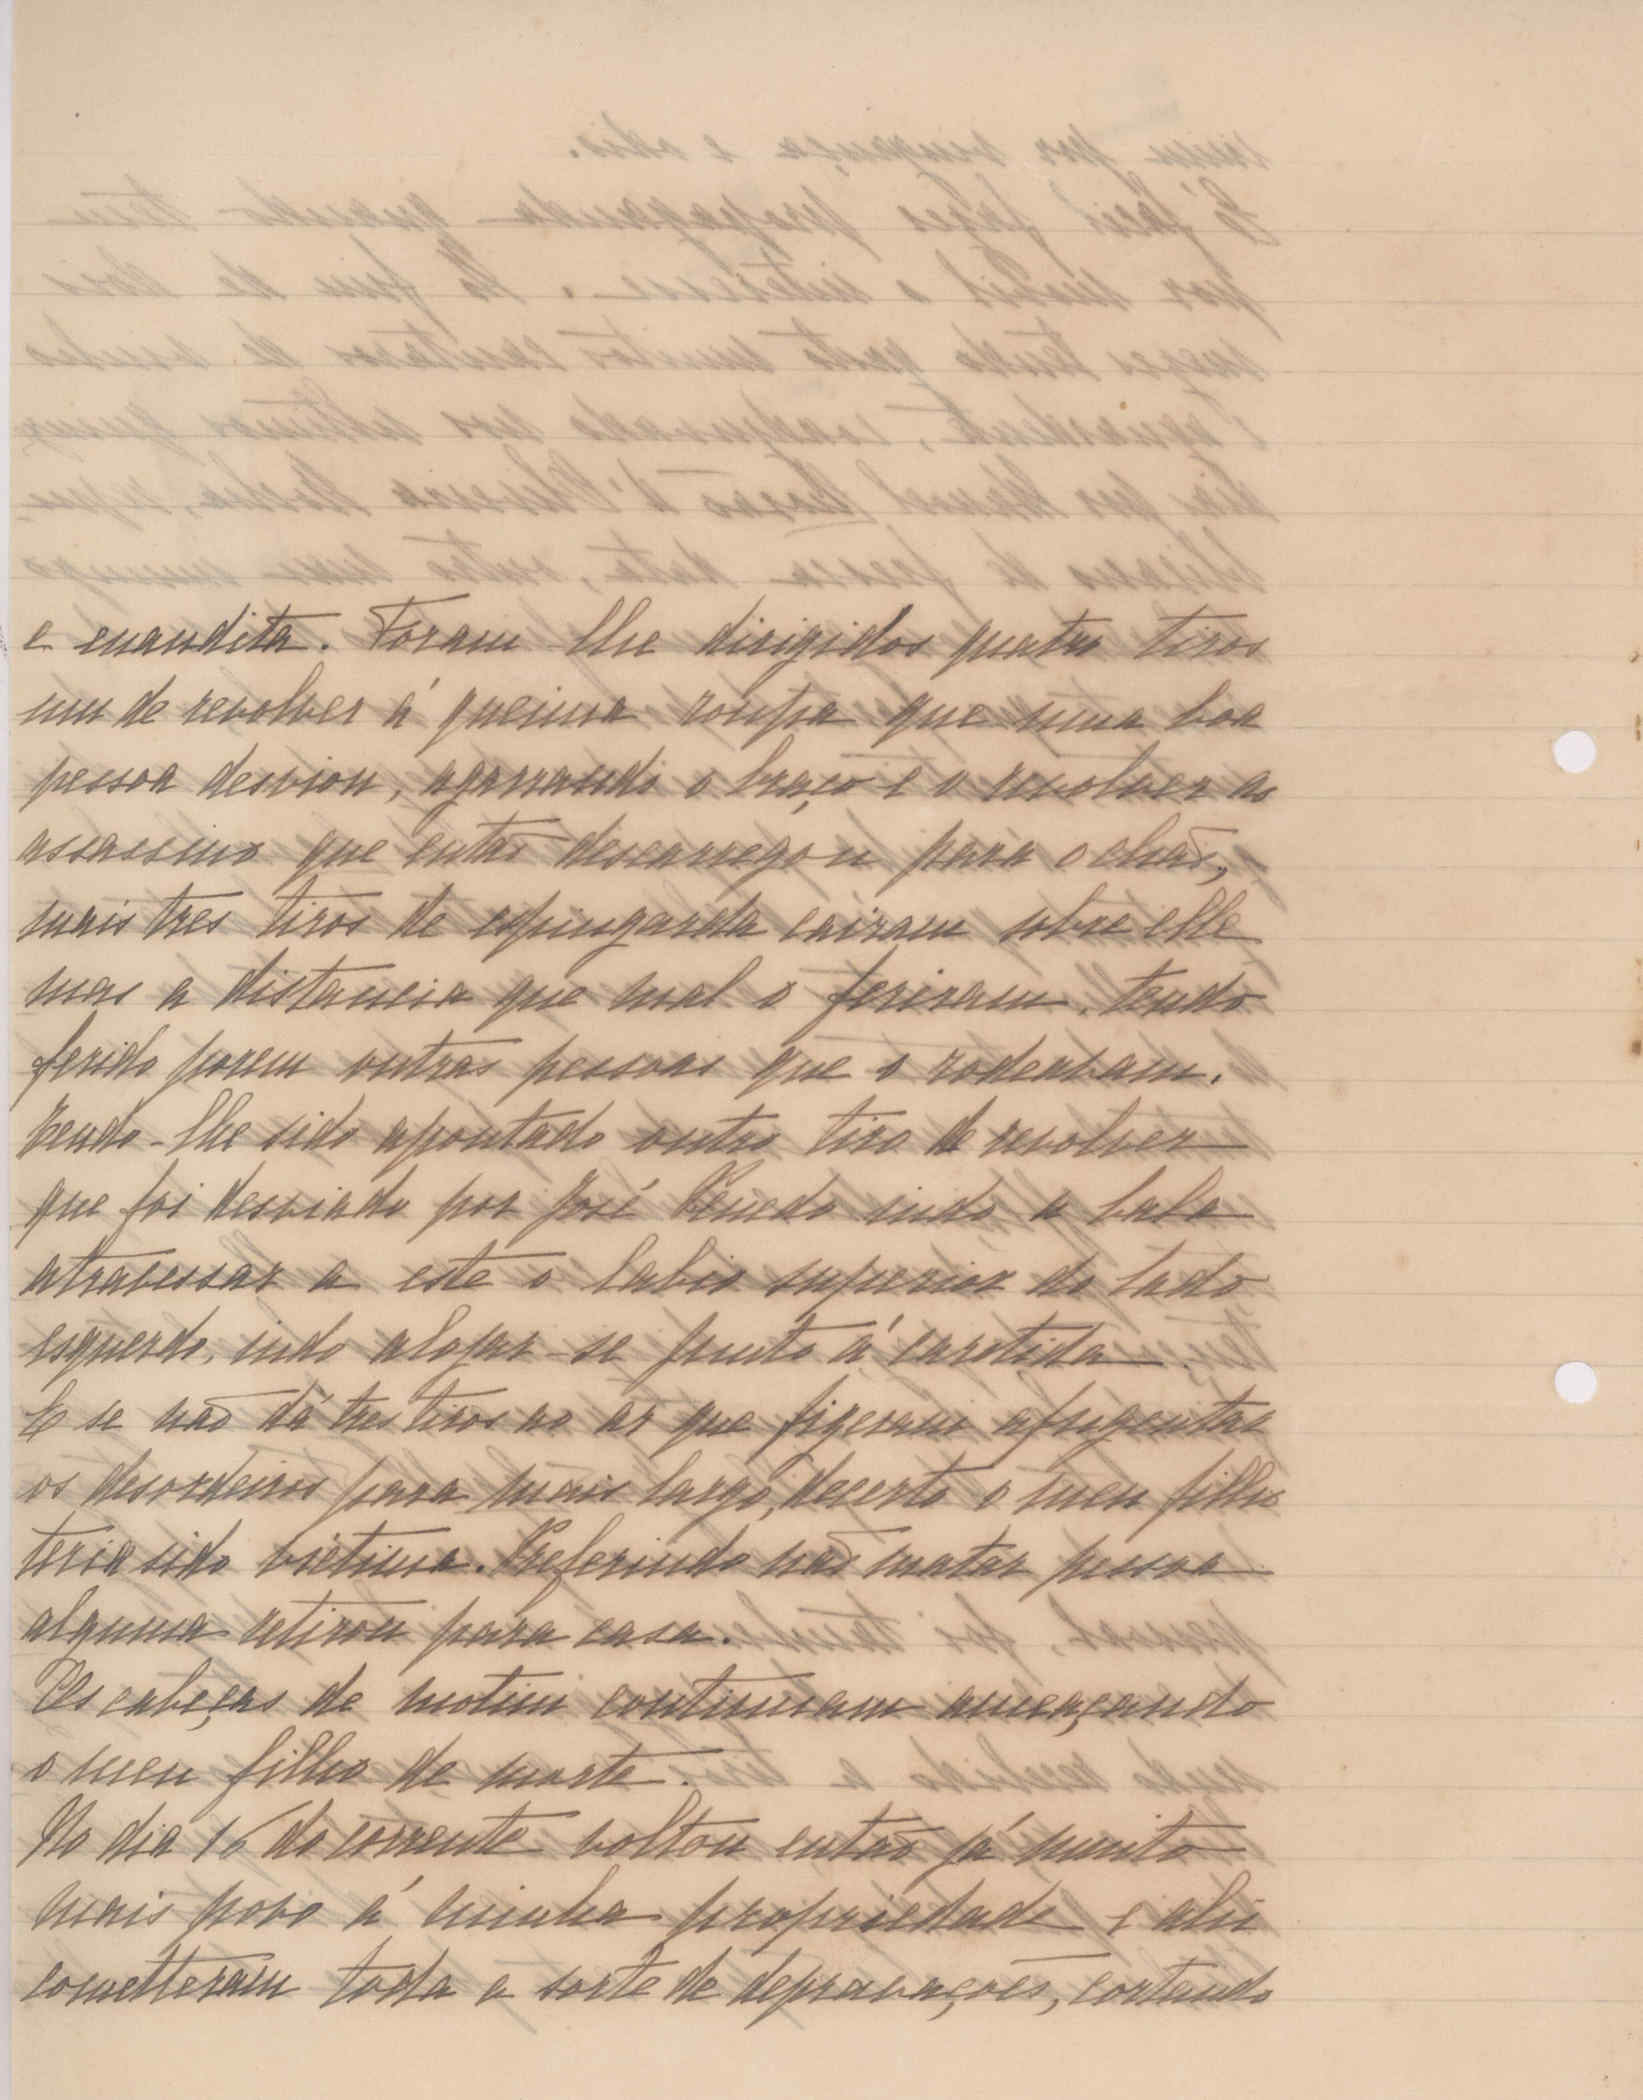 e enaudita. Foram-lhe dirigidos quatro tiros
um de revolver á queima roupa que uma boa
pessoa desviou, agarrando o braço e o revolver ao
assassino que então descarregou para o chão,
mais tres tiros de espingarda cairam sobre elle
mas a distancia que mal o feriram, tendo
ferido porem outras pessoas que o rodeabam.
Tendo-lhe sido apontado outro tiro de revolver
que foi desviado por José Penedo indo a bala
atrabessar a este o labio superior do lado
esquerdo, indo alojar-se junto á carotida.
E se não dá tres tiros ao ar que fizeram afugentar
os desordeiros para mais largo, decerto o meu filho
teria sido bictima. Preferindo não matar pessoa
alguma retirou para casa.
Os cabeças de motim continuam ameaçando
o meu filho de morte.
No dia 16 do corrente boltou então já muito
mais povo á minha propriedade e ahi
cometteram toda a sorte de deprabações, cortando